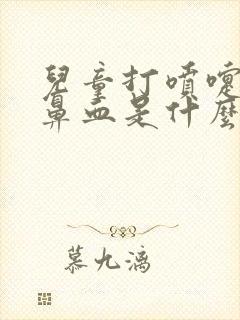 兒童打噴嚏
鼻血是什麼
慕九漓